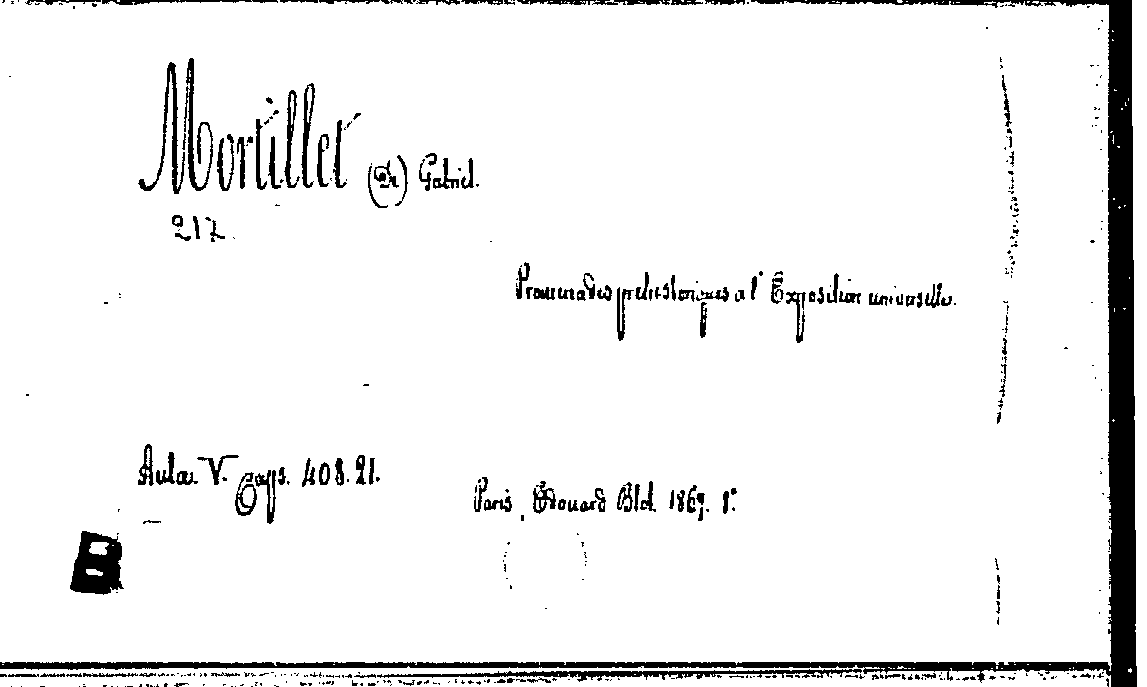 Mortillet (De) Gabriel.
217.
Promenades préhistoriques a l' Exposition universelle.
Aula V. Caps. 408. 21.
Paris, Edouard Blot. 1867. 8°
B